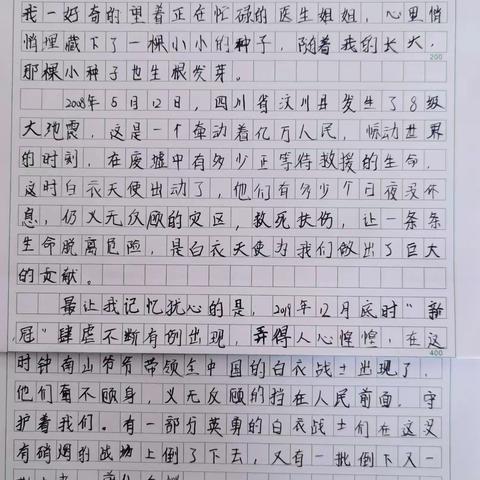 我一好奇的望着正在忙碌的医生姐姐，心里悄
悄埋藏下了一棵小小的种子，随着我的长大，
200
那棵小种子也生根发芽。
2008年5月12日，四川省汶川县发生了8级
大地震，这是一个牵动着亿万人民，惊动世界
的时刻，在废墟中有多少正等待救援的生命，
这时白衣天使出动了，他们有多少个日夜没休
息，仍义无反顾的灾区，救死扶伤，让一条条
生命脱离危险，是白衣天使为我们做出了巨大
的贡献。
最让我记忆犹心的是，2019年12月底时“新
冠”肆虐不断有例出现，弄得人心惶惶，在这
400
时钟南山爷爷带领全中国的白衣战士出现了，
他们奋不顾身，义无反顾的挡在人民前面，守
护着我们。有一部分英勇的白衣战士们在这没
有硝烟的战场上倒了下去，又有一批倒下又一